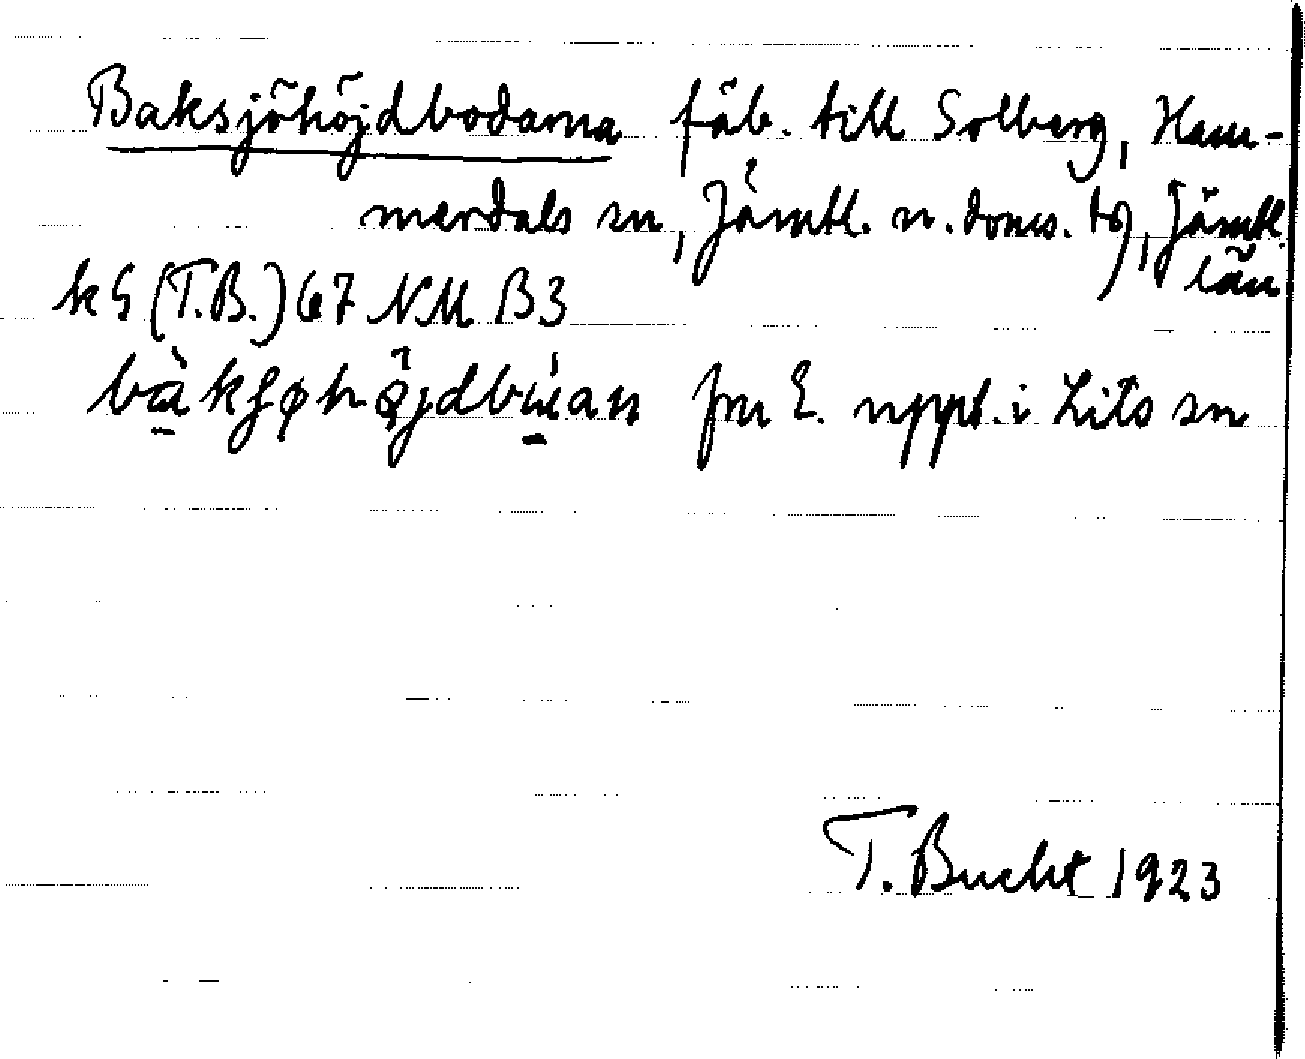 Baksjöhöjdbodarna fäb. till Solberg, Ham-
merdals sn, Jämtl. n. doms. tg, Jämtl.
län
k 5 (T.B.) 67 NM B3
fru E. uppt. i Lits sn
T. Bucht 1923